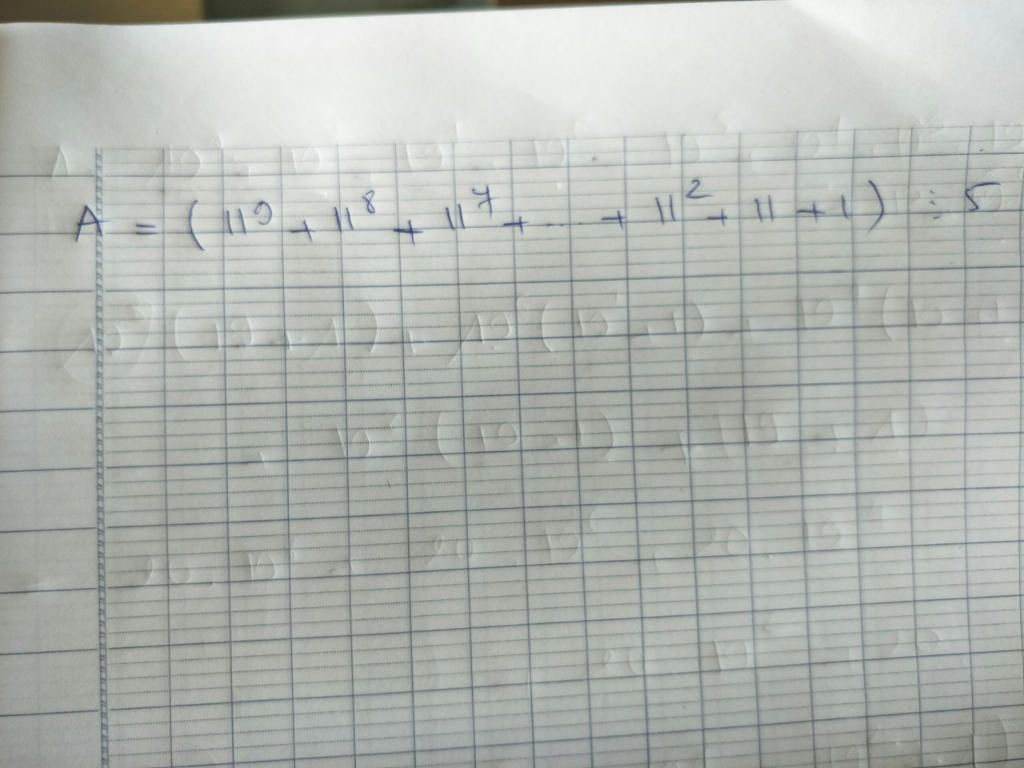 A = ( 11⁹ + 11⁸ + 11⁷ + ..... + 11² + 11 + 1 ) ⋮ 5